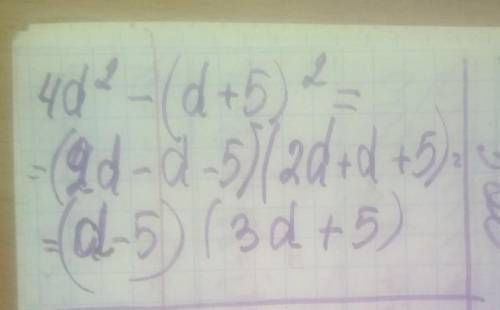 4d² - (d+5)² =
= (2d - d - 5)(2d + d + 5) =
= (d - 5) (3d + 5)